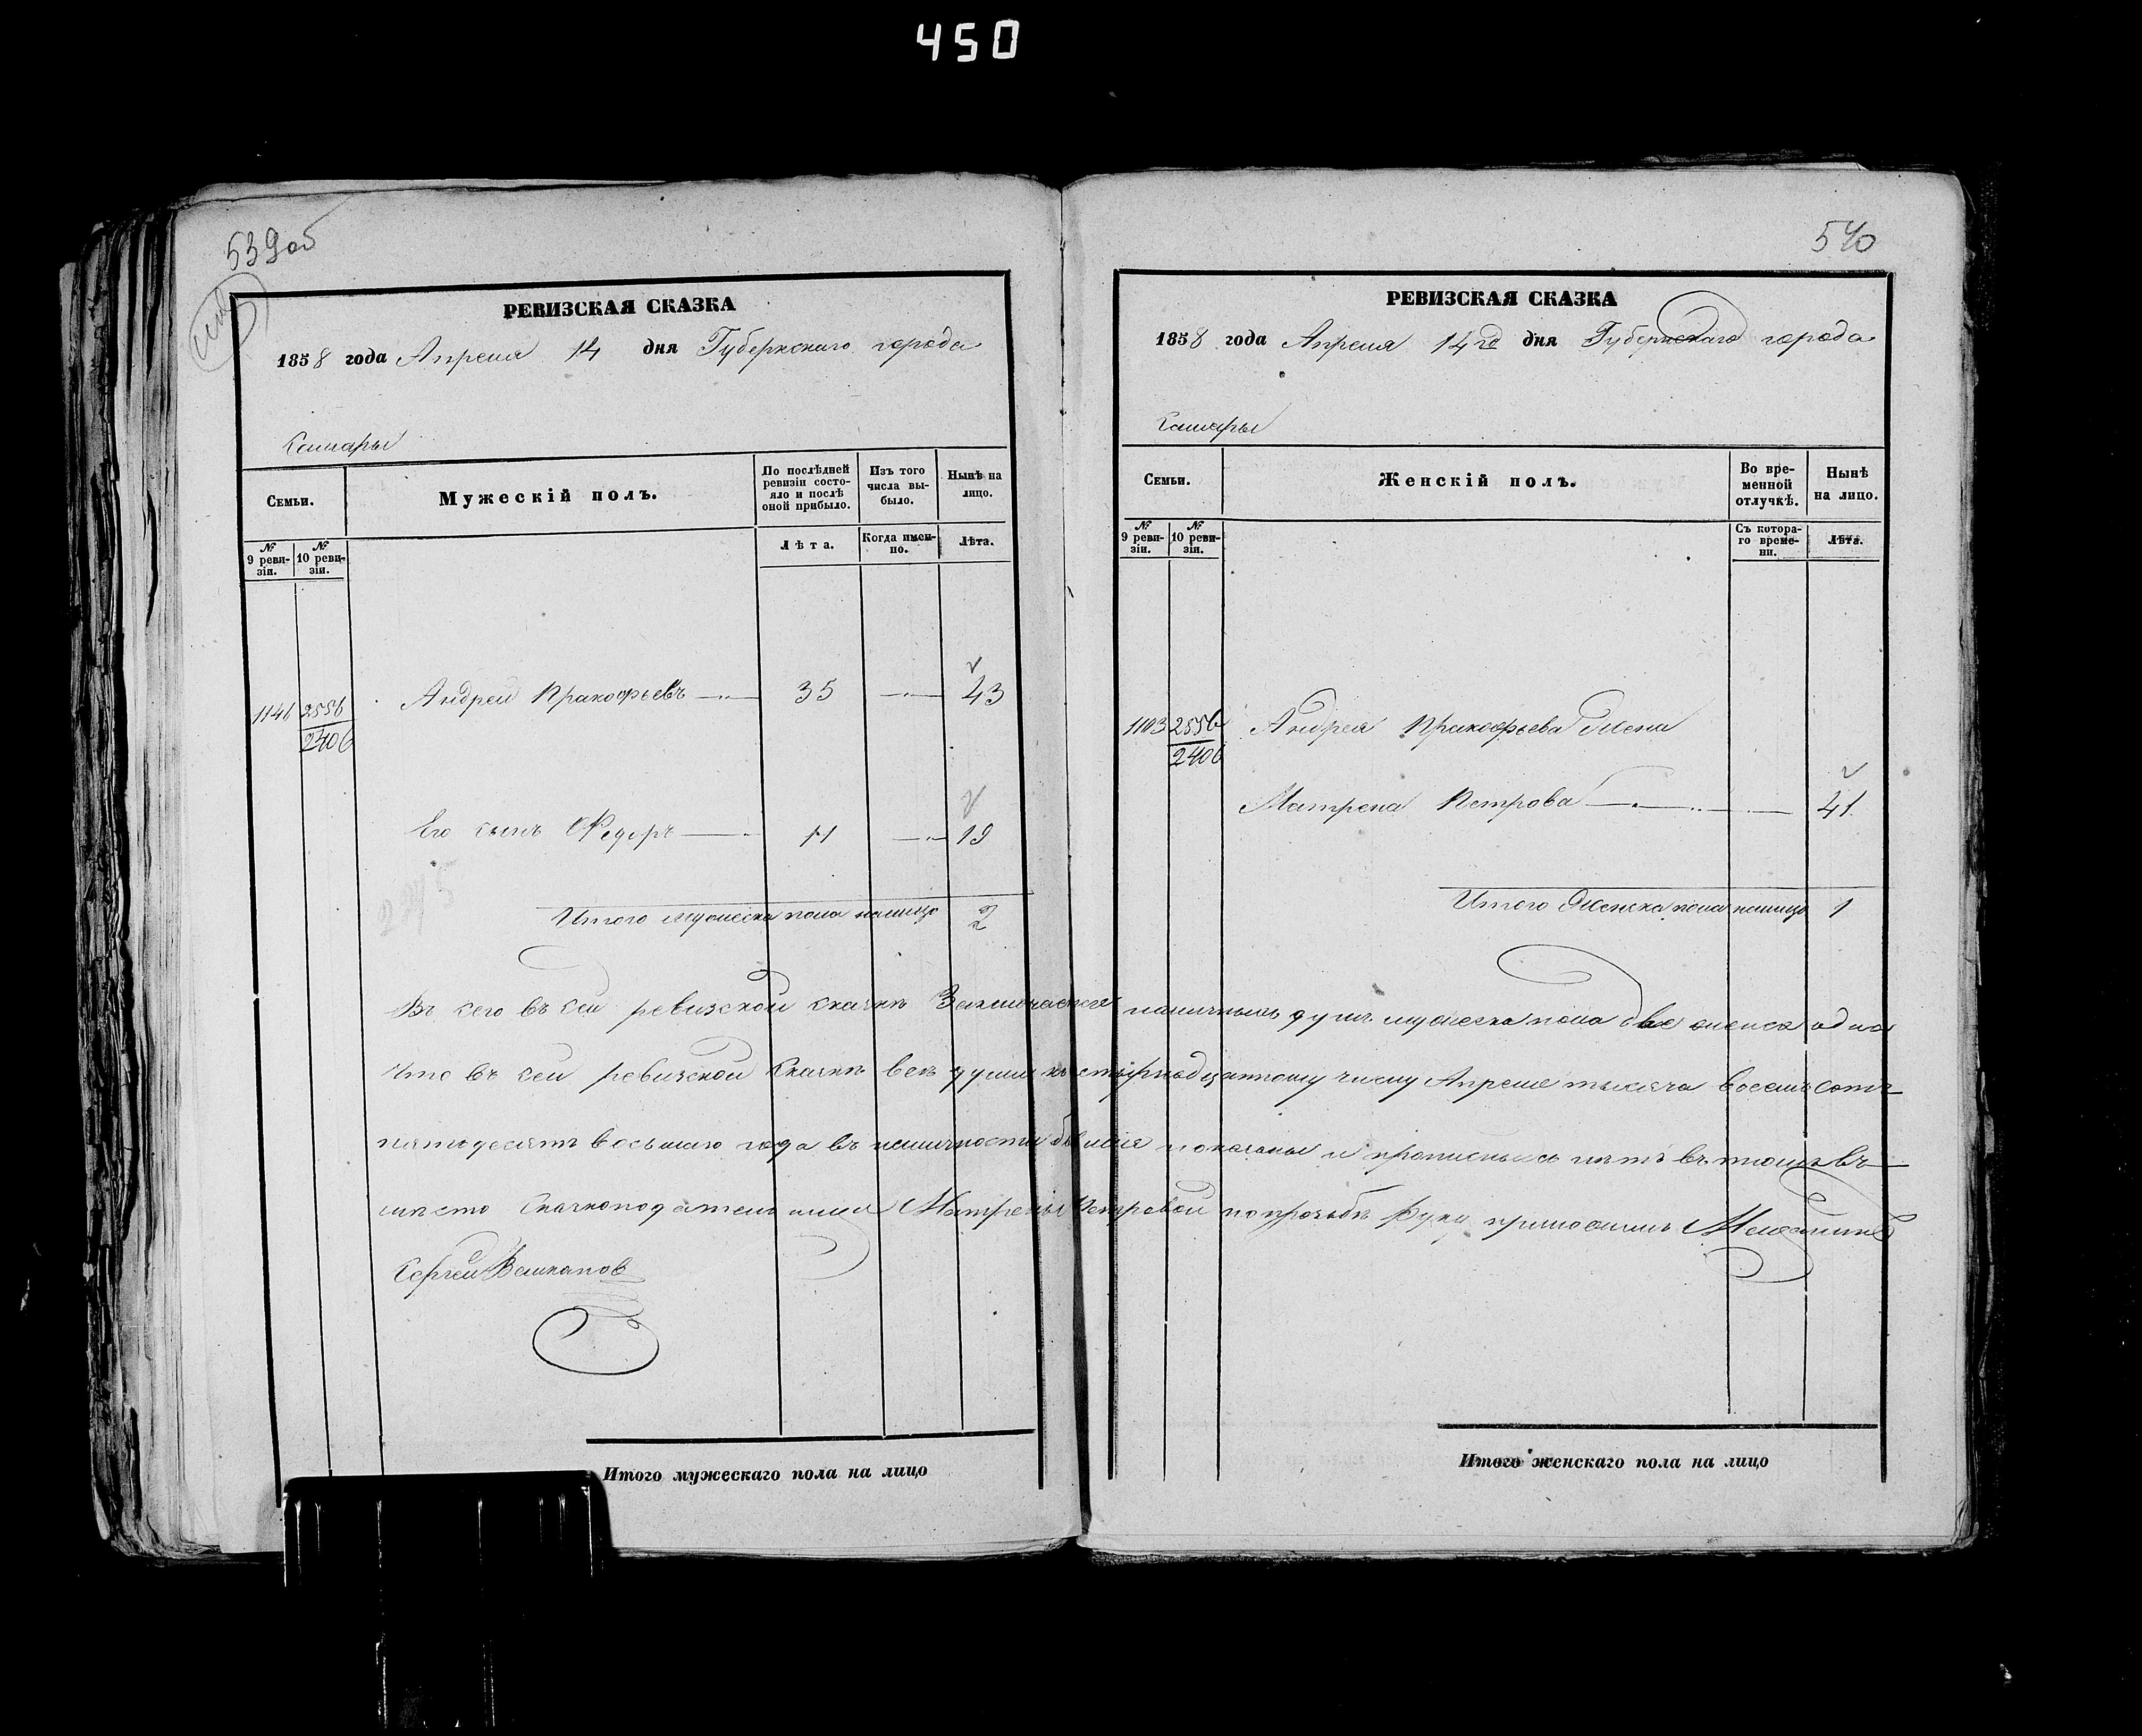 450
539об
РЕВИЗСКАЯ СКАЗКА
1858 года Апреля 14 дня Губернскаго города
Самары
Семьи.
Мужескій полъ.
По послѣдней ревизіи состояло и послѣ оной прибыло.
Изъ того числа выбыло.
Нынѣ на лицо.
№ 9 ревизіи.
№ 10 ревизіи.
Лѣта.
Когда именно.
Лѣта.
1146 2556 Андрей Пракофьевъ 35 43
2406
Его сынъ Федоръ 11 19
Итого мужеска пола налицо 2
540
РЕВИЗСКАЯ СКАЗКА
1858 года Апреля 14го дня Губернскаго города
Самары
Семьи.
Женскій полъ.
Во временной отлучкѣ.
Нынѣ на лицо.
№ 9 ревизіи.
№ 10 ревизіи.
Съ котораго времени.
Лѣта.
1103 2556 Андрея Пракофьева Жена
2406
Матрена Петрова 41
Итого Женска пола налицо 1
Въ сего въ сей ревизской сказкѣ Заключается наличныхъ душъ мужеска пола две женска одна
Что въ сей ревизской Сказкѣ всѣ души къ Апреля тысяча восемъ сотъ
пятьдесятъ восьмаго года въ наличности показаны и прописныхъ нѣтъ въ томъ въ
мѣсто Сказкоподательницы Матрены Петровой по прозьбѣ руку приложилъ Мещанинъ
Сергей
Итого мужескаго пола на лицо
Итого женскаго пола на лицо